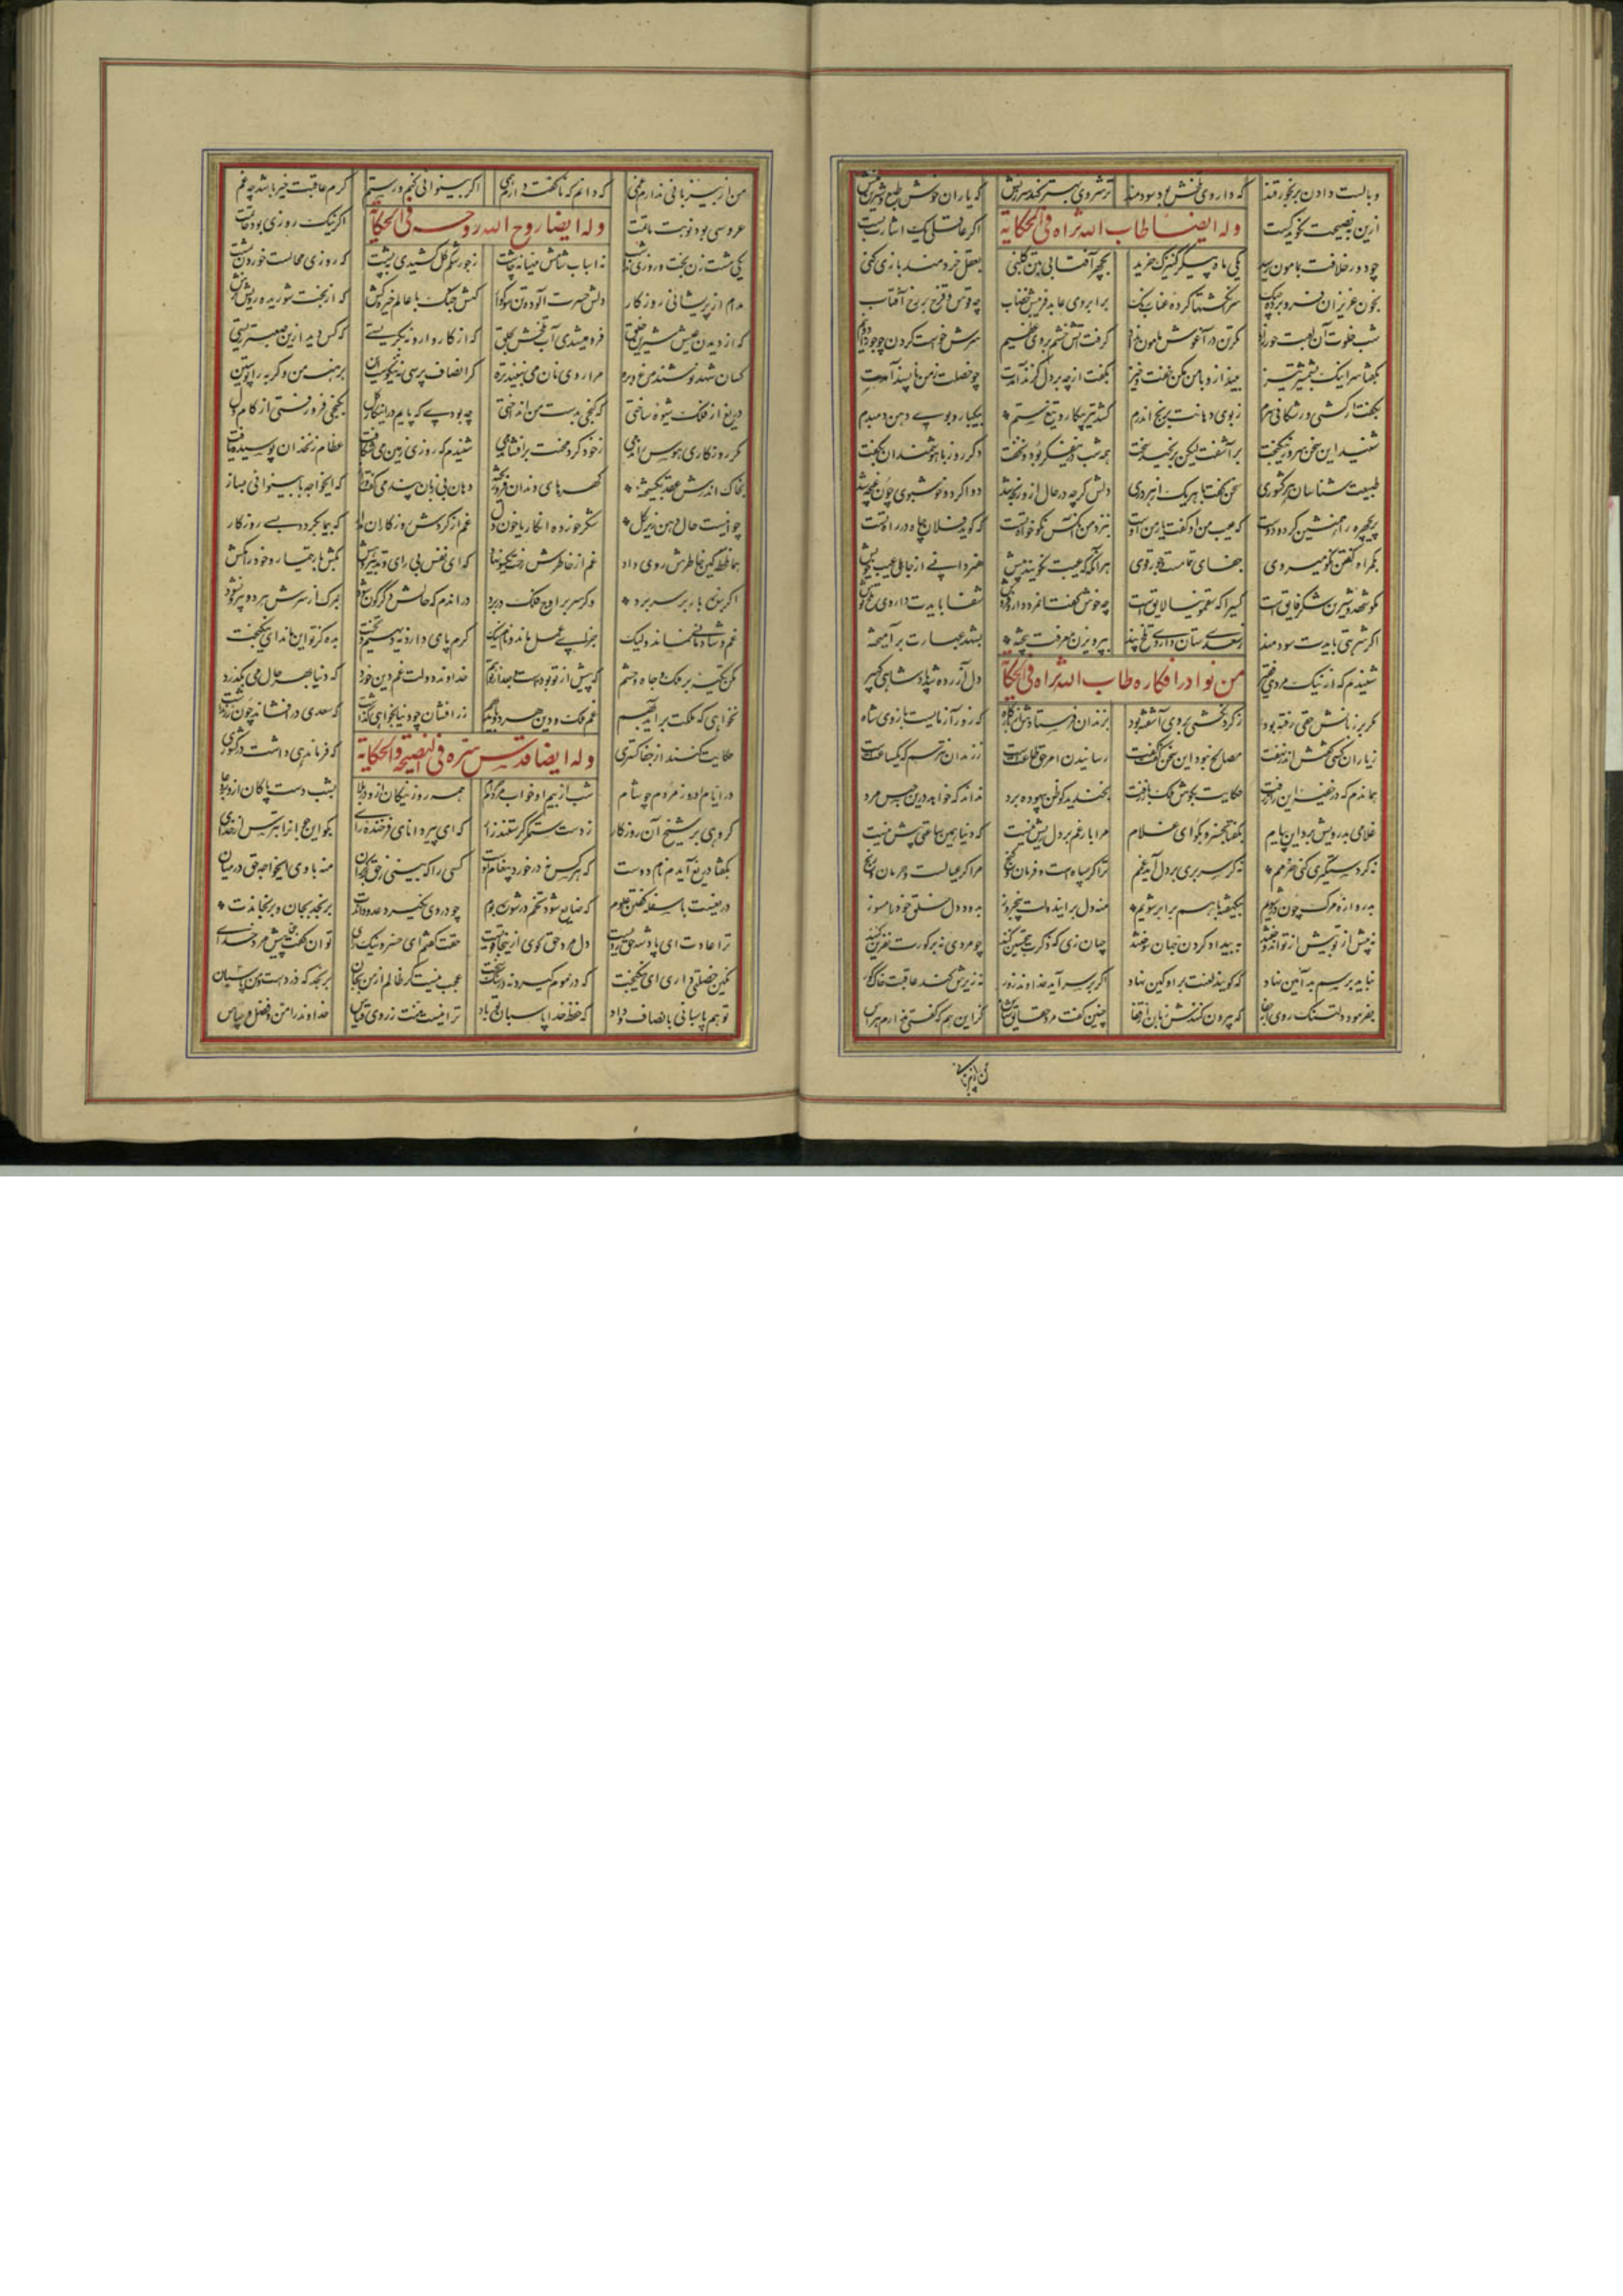 وبالست دادن برنجور قند که داروی تلخش بود سودمند ترشروی بهتر کند سرزنش که یاران خوش طبع شیرین منش
ازین به نصیحت نکوید کست اکر عاقلی یک اشارت بست
وله ایضا طاب الله ثراه فی الحکایة
چو دور خلافت بمامون رسید یکی ماه پیکر کنیزک خرید بچهر آفتابی بتن کلبنی بعقل خردمند بازی کنی
بخون عزیزان فرو برده چنک سر انکشتها کرده عناب رنک بر ابروی عابد فریبش خضاب چو قوس قزح بر رخ آفتاب
شب خلوت آن لعبت حورزاد مکر تن در آغوش مامون نداد کرفت آتش خشم بروی عظیم سرش خواست کردن چو جوزا دو نیم
بکفتا سر اینک بشمشیر تیز بینداز و با من مکن خفت و خیز بکفت از چه بر دل کزند آمدت چه خصلت زمن ناپسند آمدت
بکفت ار کشی ور شکافی سرم ز بوی دهانت برنج اندرم کشد تیر پیکار و تیغ ستم بیکبار و بوی دهن دمبدم
شنید این سخن سرور نیکبخت بر آشفت لیکن برنجید سخت همه شب درین فکر بود و نخفت دکر روز با هوشمندان بکفت
طبیعت شناسان هر کشوری سخن کفت با هریک از هر دری دلش کرچه در حال ازو رنجه شد دوا کرد و خوشبوی چون غنچه شد
پریچهره را همنشین کرد و دوست که عیب من او کفت یار من اوست بنزد من آنکس نکو خواه تست که کوید فلان چاه در راه تست
بکمراه کفتن نکو میروی جفای تمامست و جور قوی هر آنکه که عیبت نکویند پیش هنر دانی از جاهلی عیب خویش
مکو شهد شیرین شکر فایق است کسیرا که سقمونیا لایق است چه خوش کفت آنمرد دارو فروش شفا بایدت داروی تلخ نوش
اکر شربتی بایدت سودمند ز سعدی ستان داروی تلخ پند بپرویزن معرفت بیخته بشهد عبارت بر آمیخته
من نوادر افکاره طاب الله ثراه فی الحکایة
شنیدم که از نیک مردی فقیر دل آزرده شد پادشاهی کبیر
مکر بر زبانش حقی رفته بود ز کردنکشی بروی آشفته بود بزندان فرستادش از بارکاه که زور آزمایست بازوی شاه
ز یاران کسی کفتش اندر نهفت مصالح نبود این سخن کفت کفت رسانیدن امر حق طاعتست ز زندان نترسم که یکساعتست
هماندم که در خفیه این راز رفت حکایت بکوش ملک باز رفت بخندید کو ظن بیهوده برد نداند که خواهد درین حبس مرد
غلامی بدرویش برد این پیام بکفتا بخسرو بکو ای غلام مرا بار غم بر دل ریش نیست که دنیا همین ساعتی بیش نیست
نه کر دستکیری کنی خرمم نه کر سر بری بر دل آید غمم ترا کر سپاهست و فرمان و کنج مرا کر عیالست و حرمان و رنج
بدروازه مرک چون در شویم بیکهفته با هم برابر شویم منه دل برین دولت پنجروز بدود دل خلق خود را مسوز
نه پیش از تو بیش از تو اندوختند به بیداد کردن جهان سوختند چنان زی که ذکرت بتحسین کنند چو مردی نه بر کورت نفرین کنند
نباید برسم بد آیین نهاد که کویند لعنت بر او کین نهاد اکر بر سر آید خداوند زور نه زیرش کند عاقبت خاک کور
بفرمود دلتنک روی از جفا که بیرون کنندش زبان از قفا چنین کفت مرد حقایق شناس کزین هم که کفتی ندارم هراس
من از بی زبانی
من از بیزبانی ندارم غمی که دانم که ناکفته داند همی اکر بینوائی کشم ور ستم کرم عاقبت خیر باشد چه غم
عروسی بود نوبت ماتمت اکر نیک روزی بود خاتمت
وله ایضا روح الله روحه فی الحکایة
یکی مشت زن بخت و روزی نداشت نه اسباب شامش مهیا نه چاشت ز جور شکم کل کشیدی بپشت که روزی محالست خوردن بمشت
مدام از پریشانی روزکار دلش حسرت آلوده تن سوکوار کهش جنک با عالم خیره کش که از بخت شوریده رویش ترش
که از دیدن عیش شیرین خلق فرو میشدی آب تلخش بحلق که از کار وارونه بکریستی که کس دید ازین صعبتر زیستی
کسان شهد نوشند و مرغ و بره مرا روی نان می نبیند تره کر انصاف پرسی نه نیکوست این برهنه من و کربه را پوستین
دریغ ار فلک شیوه ساختی که کنجی بدست من انداختی چه بودی که پایم درین کار کل بکنجی فرو رفتی از کام دل
مکر روزکاری هوس راندمی ز خود کرد محنت بر افشاندمی شنیدم که روزی زمین می شکافت عظام زنخدان پوسیده یافت
بخاک اندرش عقد بکسیخته کهرهای دندان فرو ریخته دهان بی زبان پند می کفت و راز که ایخواجه با بینوائی بساز
چو اینست حال دهن زیر کل شکر خورده انکار یا خون دل غم از کردش روزکاران مدار که بیما بکردد بسی روزکار
هماندم کین خاطرش روی داد غم از خاطرش رخت یکسو نهاد که ای نفس بی رای و تدبیر و هش بکش بار تیمار و خود را مکش
اکر بنده بار بر سر برد وکر سر بر اوج فلک در برد در آندم که حالش دکرکون شود بمرک از سرش هر دو بیرون شود
غم و شادمانی نماند ولیک جزای عمل ماند و نام نیک کرم پای دارد نه دیهیم و تخت بده کز تو این ماند ای نیکبخت
مکن تکیه بر ملک و جاه و حشم که پیش از تو بودست و بعد از تو هم خداوند دولت غم دین خورد که دنیا بهر حال می بکذرد
نخواهی که ملکت بر آید بهم غم ملک و دین هر دو باید بهم زر افشان چو دنیا بخواهی کذاشت که سعدی در افشاند چون زر نداشت
وله ایضا قدس سره فی النصیحة والحکایة
حکایت کنند از جفا کستری که فرماندهی داشت در کشوری
در ایام او روز مردم چو شام شب از بیم او خواب مردم حرام همه روز نیکان ازو در بلا بشب دست پاکان ازو بر دعا
کروهی بر شیخ آن روزکار ز دست ستمکر کرستند زار که ای پیر دانای فرخنده رای بکو این جوانرا بترس از خدای
بکفتا دریغ آیدم نام دوست که هر کس نه در خورد پیغام اوست کسی را که بینی ز حق بر کران منه با وی ایخواجه حق در میان
دریغست با سفله کفتن علوم که ضایع شود تخم در شوره بوم چو در وی نکیرد عدو داندت برنجد بجان و برنجاندت
ترا عادت ای پادشه حق رویست دل مرد حق کوی ازینجا قویست حقت کفتم ای خسرو نیک رای توان کفت حق پیش مرد خدای
نکین خصلتی دارد ای نیکبخت که در موم کیرد نه در سنک سخت عجب نیست کر ظالم از من بجان برنجد که دزدست و من پاسبان
تو هم پاسبانی بانصاف و داد که حفظ خدا پاسبان تو باد ترا نیست منت ز روی قیاس خداوند را من و فضل و سپاس